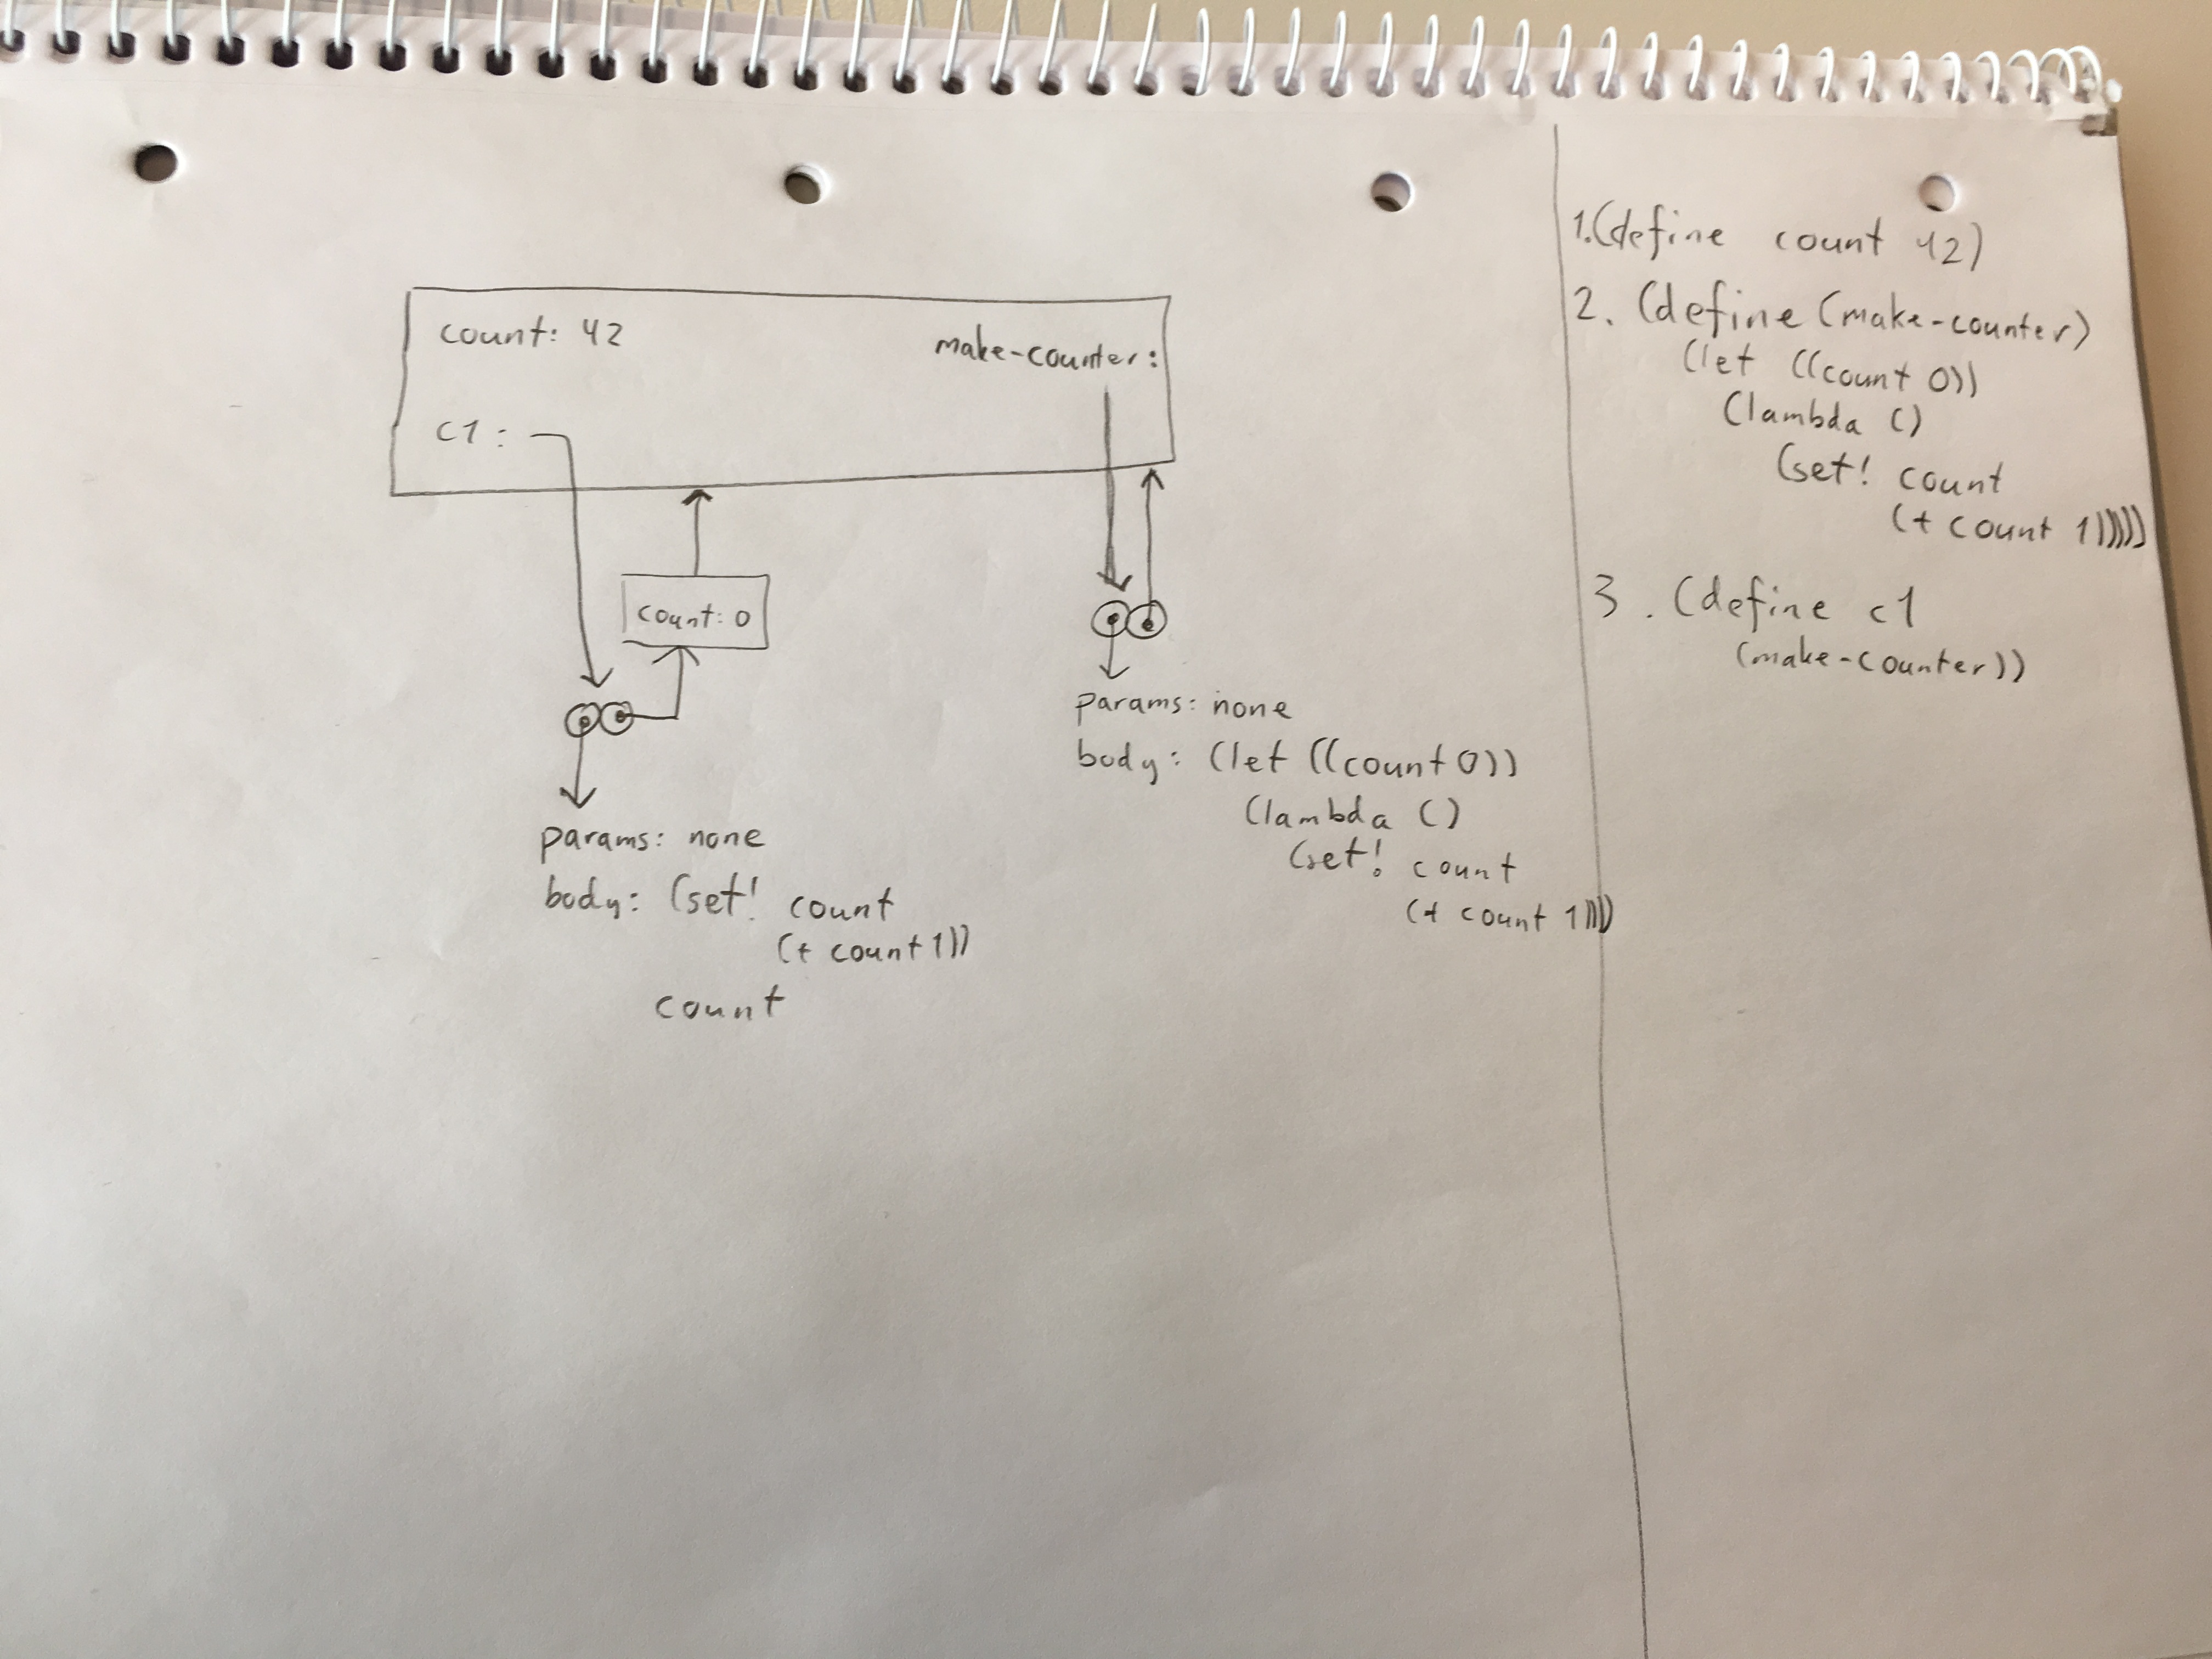 count: 42
make-counter:
c1:
count: 0
params: none
body: (set! count
(+ count 1))
count
params: none
body: (let ((count 0))
(lambda ()
(set! count
(+ count 1))))
1.(define count 42)
2. (define (make-counter)
(let ((count 0))
(lambda ()
(set! count
(+ count 1)))))
3. (define c1
(make-counter))